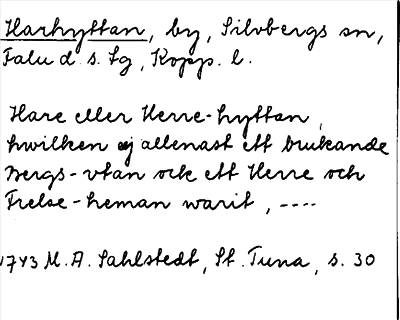 Harhyttan, by, Silvbergs sn,
Falu d. s. lg, Kopp. l.
Hare eller Herre-hyttan,
hwilken ej allenast ett brukande
Bergs-utan ock ett Herre och
Frelse-heman warit, ----
1743 M. A. Sahlstedt, St. Tuna, s. 30